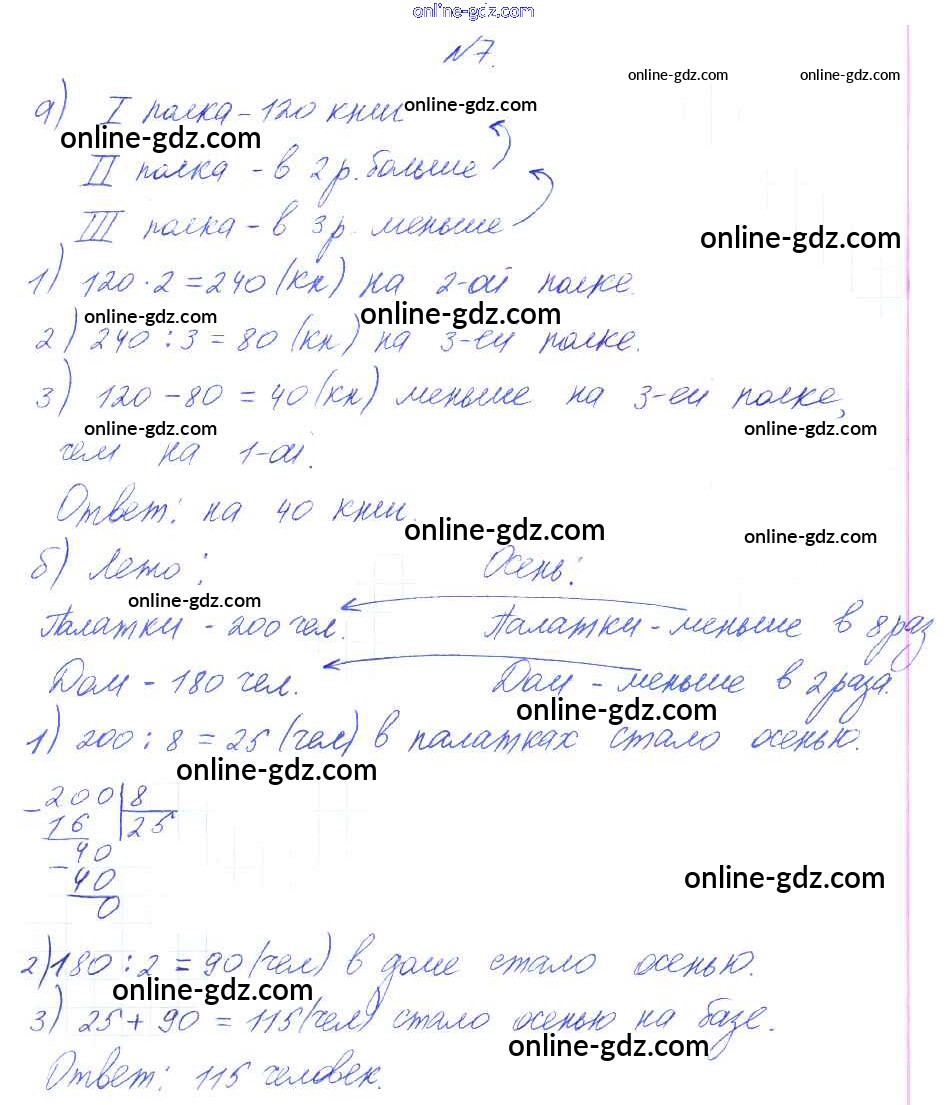 online-gdz.com
№7.
online-gdz.com online-gdz.com
а) I полка - 120 книг online-gdz.com
online-gdz.com
II полка - в 2 р. больше
III полка - в 3 р. меньше
online-gdz.com
1) 120 · 2 = 240 (кн) на 2-ой полке.
online-gdz.com online-gdz.com
2) 240 : 3 = 80 (кн) на 3-ей полке.
3) 120 - 80 = 40 (кн) меньше на 3-ей полке,
online-gdz.com online-gdz.com
чем на 1-ой.
Ответ: на 40 книг.
online-gdz.com online-gdz.com
б) Лето: Осень:
online-gdz.com
Палатки - 200 чел. Палатки - меньше в 8 раз
Дом - 180 чел. Дом - меньше в 2 раза.
online-gdz.com
1) 200 : 8 = 25 (чел) в палатках стало осенью.
online-gdz.com
- 200 8
16 25
40
- 40
0
online-gdz.com
2) 180 : 2 = 90 (чел) в доме стало осенью.
online-gdz.com
3) 25 + 90 = 115 (чел) стало осенью на базе.
online-gdz.com
Ответ: 115 человек.